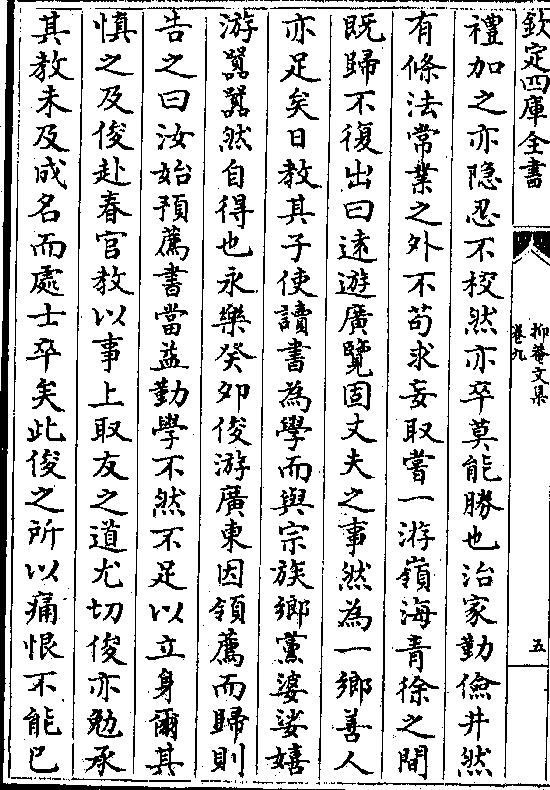 欽定四庫全書
抑菴文集
卷九
五
禮加之亦隐忍不校然亦卒莫能勝也治家勤儉井然
有條法常業之外不苟求妄取嘗一游嶺海青徐之間
既歸不復出曰逺遊廣覽固丈夫之事然為一鄉善人
亦足矣日教其子使讀書為學而與宗族鄉黨婆娑嬉
游囂囂然自得也永樂癸夘俊游廣東因領薦而歸則
告之曰汝始預薦書當益勤學不然不足以立身爾其
慎之及俊赴春官教以事上取友之道尤切俊亦勉承
其教未及成名而處士卒矣此俊之所以痛恨不能已